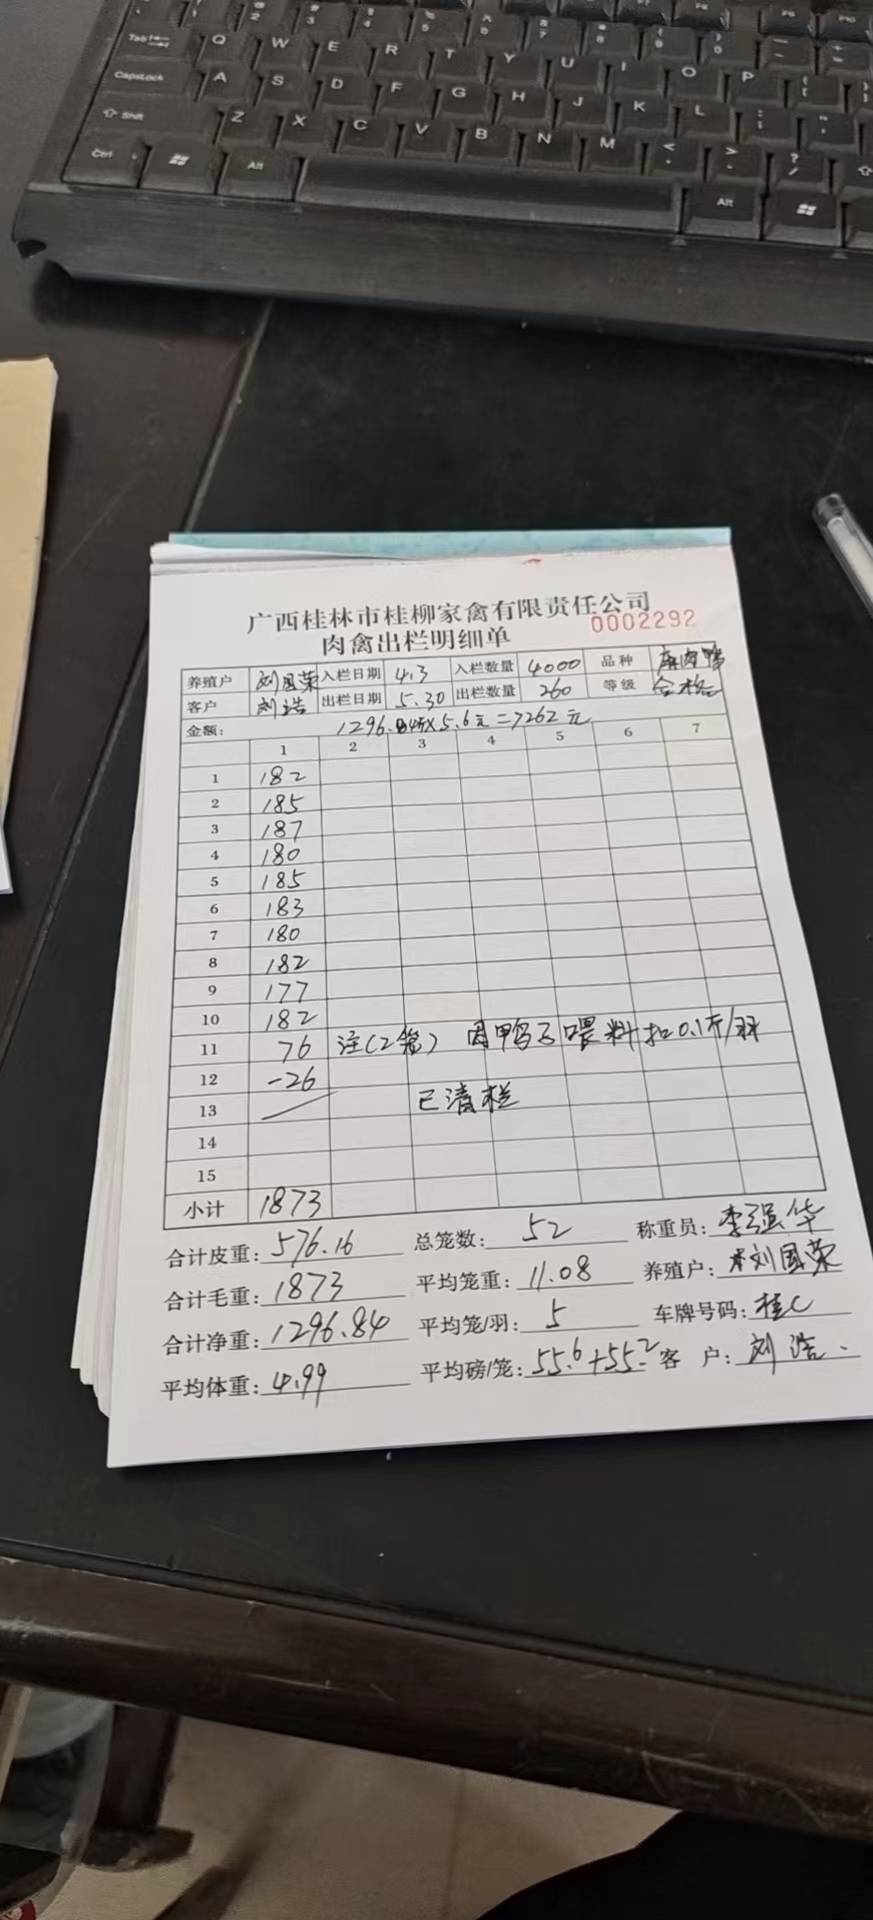 广西桂林市桂柳家禽有限责任公司
肉禽出栏明细单 0002292
养殖户 刘国荣 入栏日期 4.3 入栏数量 4000 品种 麻肉鸭
客户 刘浩 出栏日期 5.30 出栏数量 260 等级 合格
金额: 1296.84斤×5.6元=7262元
1 2 3 4 5 6 7
1 182
2 185
3 187
4 180
5 185
6 183
7 180
8 182
9 177
10 182
11 76 注(2笼) 因鸭子喂料扣0.1斤/羽
12 -26
13 已清栏
14
15
小计 1873
合计皮重: 576.16 总笼数: 52 称重员: 李强华
合计毛重: 1873 平均笼重: 11.08 养殖户: 刘国荣
合计净重: 1296.84 平均笼/羽: 5 车牌号码: 桂C
平均体重: 4.99 平均磅/笼: 55.6+55.2 客 户: 刘浩
Tab
Q W E R T Y U I O P
CapsLock
A S D F G H J K L
Shift
Z X C V B N M
Ctrl Alt Alt